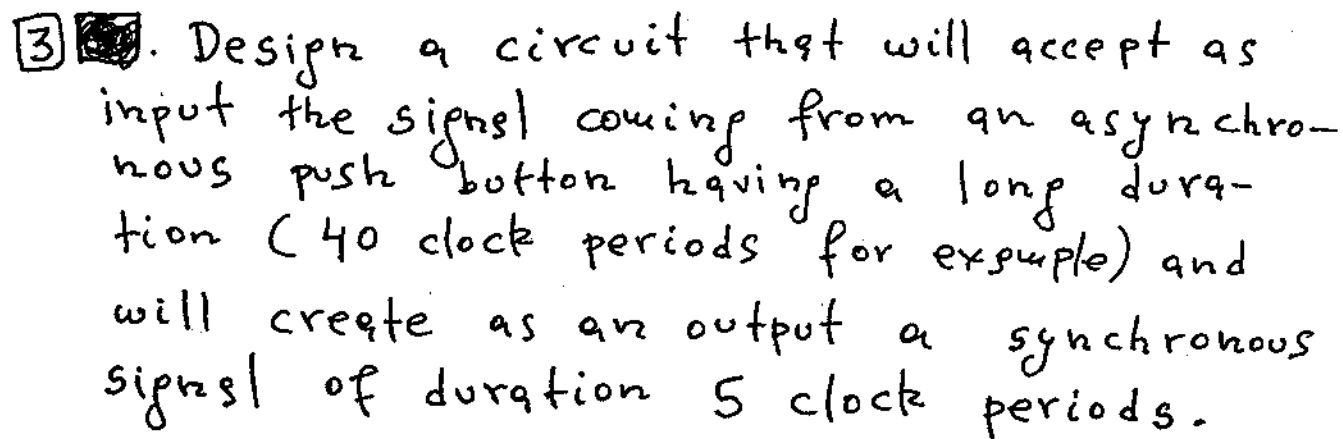 3. Design a circuit that will accept as
input the signal coming from an asynchro-
nous push button having a long dura-
tion (40 clock periods for example) and
will create as an output a synchronous
signal of duration 5 clock periods.